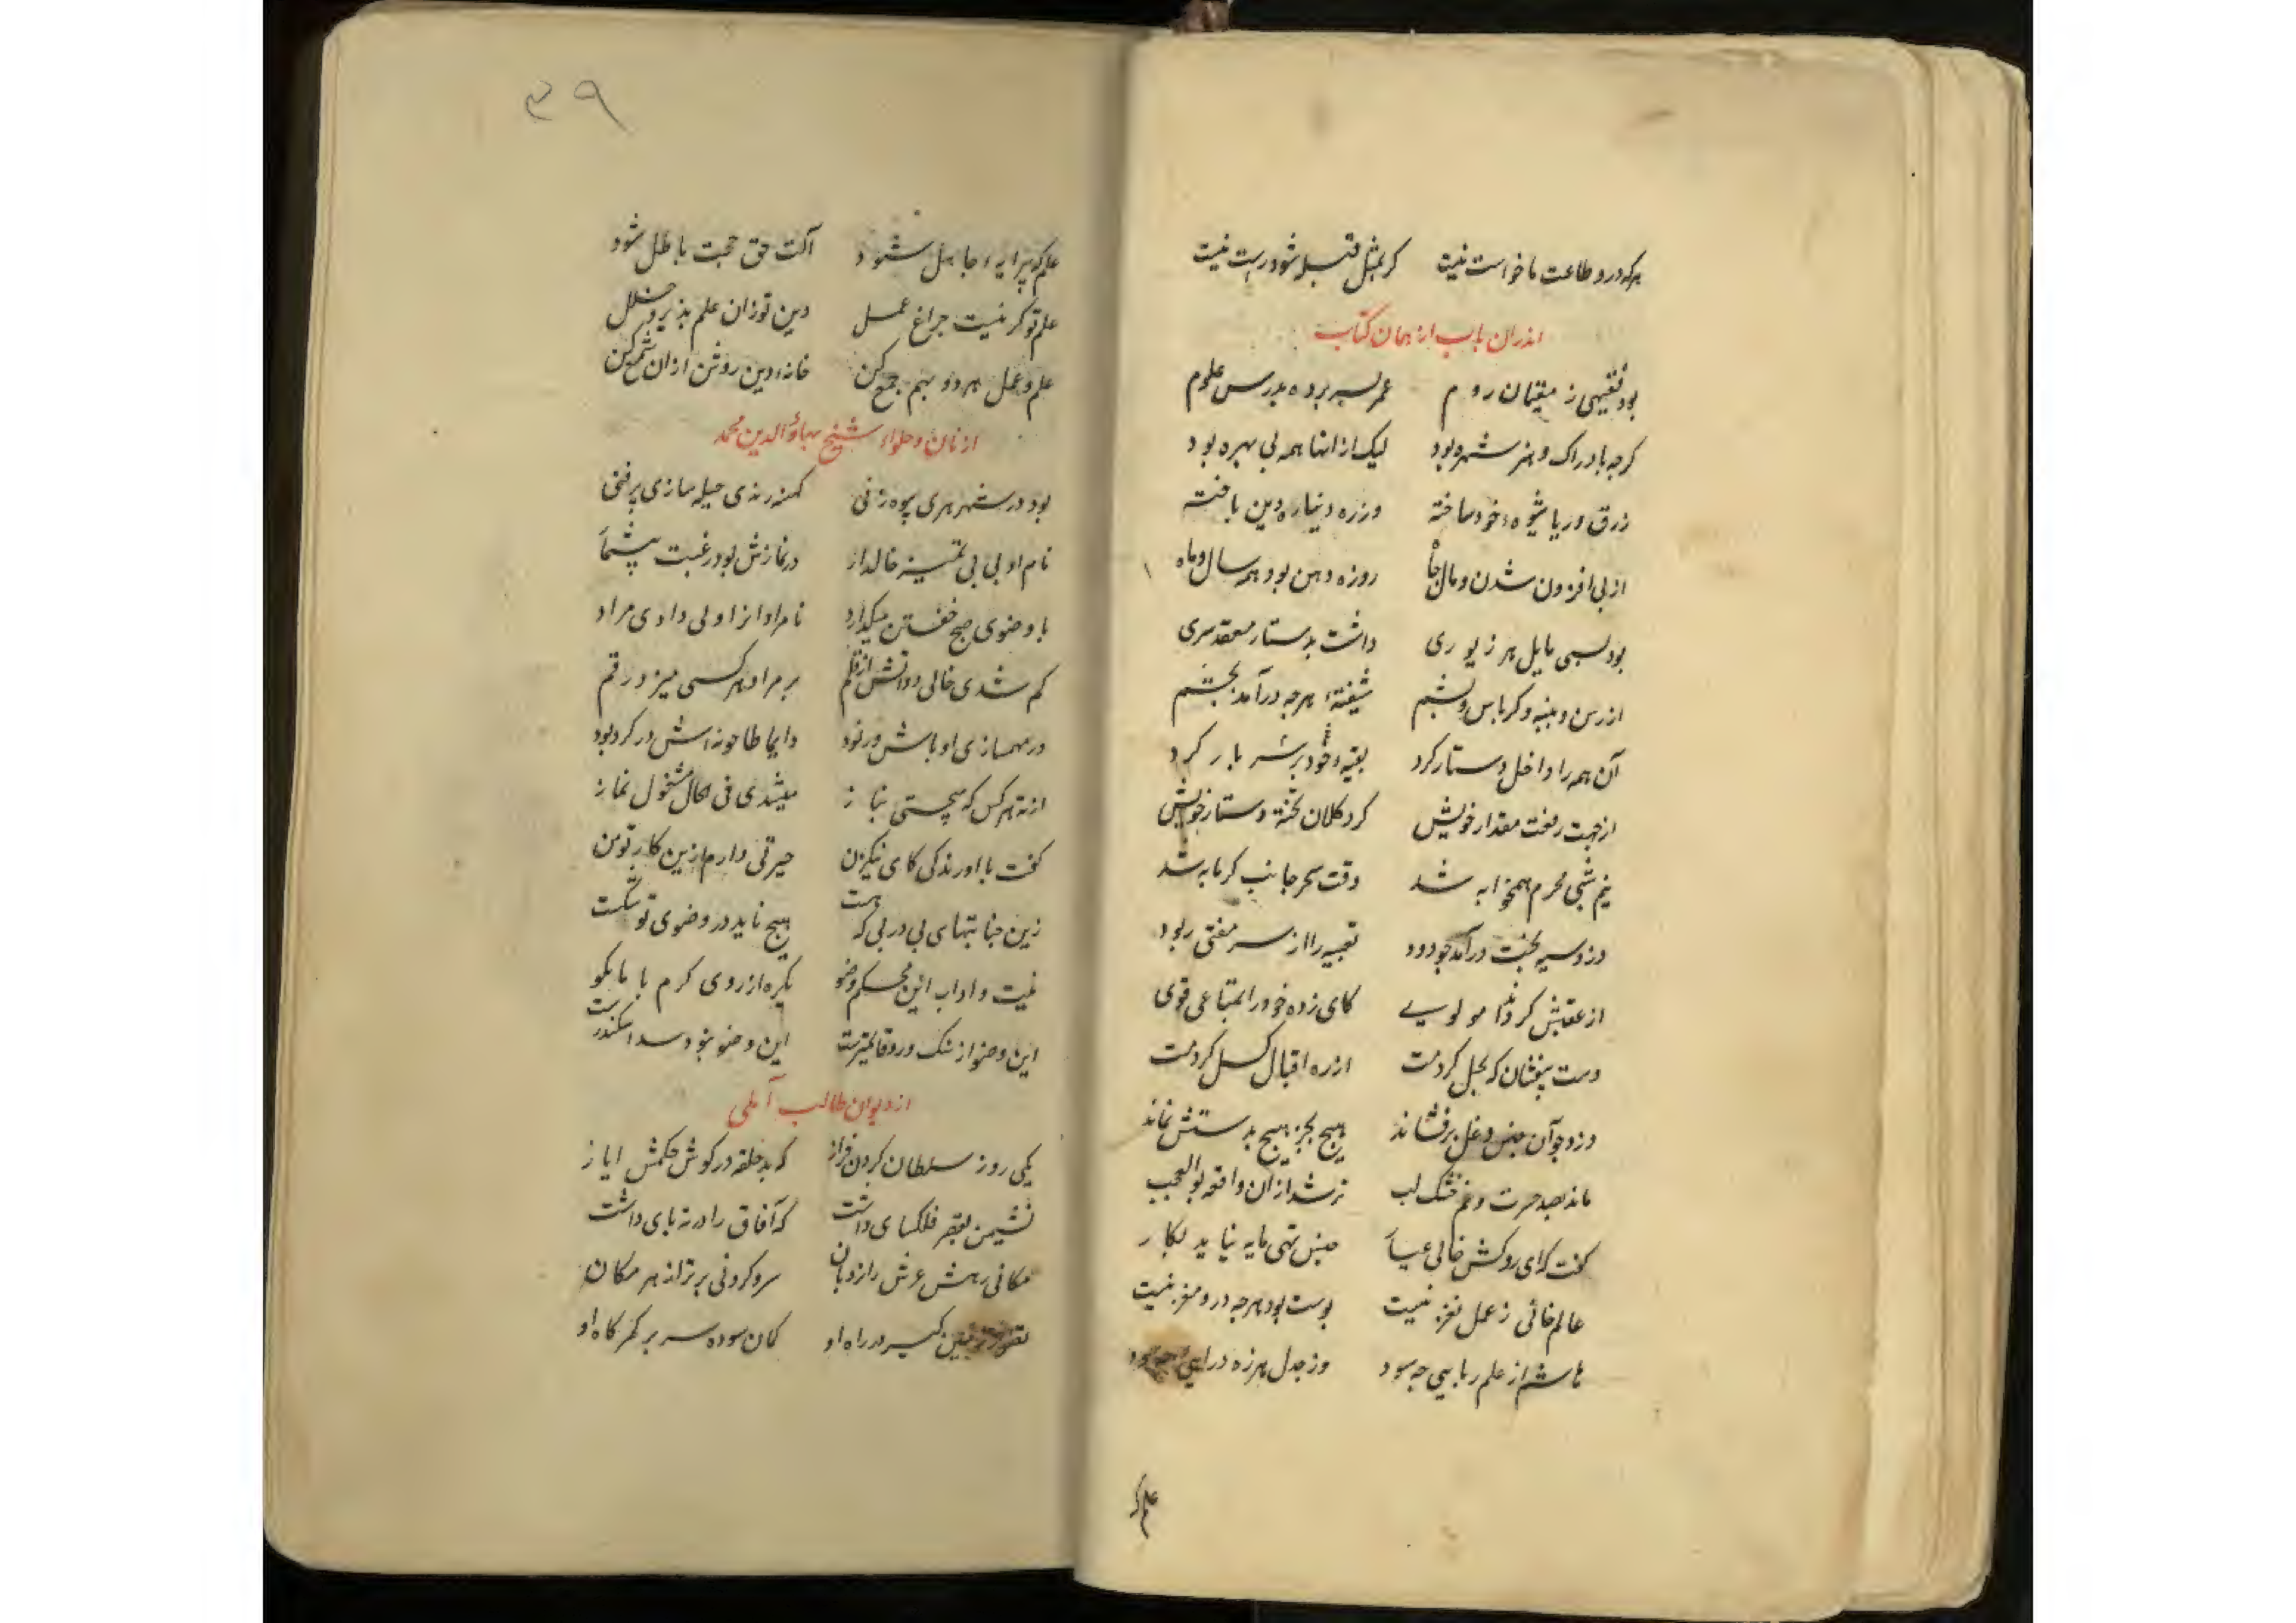 هرکه درو طاعت ما خواست نیست کر بمثل قبله شود راست نیست
اندران باب از همان کتاب
بود فقیهی ز مقیمان روم عمر بسر برده بدرس علوم
کرچه بادراک و هنر شهره بود لیک از انها همه بی بهره بود
زرق و ریا شیوه خود ساخته وز ره دنیا ره دین باخته
از پی افزون شدن و مال و جاه روزه دهن بود همه سال و ماه
بود بسی مایل هر زیوری داشت بدستار معقد سری
از رسن و پنبه و کرباس و پشم شیفتهٔ هرچه درآمد بچشم
آن همه را داخل دستار کرد بقیه خود بر سر بار کرد
از جهت رفعت مقدار خویش کرد کلان تخته دستار خویش
نیم شبی محرم همخوابه شد وقت سحر جانب کرمابه شد
دزد سیه بخت درآمد چو دود تعبیه را از سر مفتی ربود
از عقبش کرد ندا مولوی کای زده خود را بمتاعی قوی
دست بیفشان که بحل کردمت از ره اقبال کسل کردمت
دزد چو آن جنس دغل برفشاند هیچ بجز هیچ بدستش نماند
ماند بصد حسرت و غم خشک لب تر شد از آن واقعه بوالعجب
کفت که ای روکش خالی عیار جنس تهی مایه نیاید بکار
عالم خائی ز عمل نغز نیست پوست بود هرچه درو مغز نیست
هاشم از علم ریایی چه سود وز جدل هرزه درایی چه سود
علم کو
۳۹
علم کو پیرایه جاهل شود آلت حق حجت باطل شود
علم تو کر نیست چراغ عمل دین تو زان علم پذیرد خلل
علم و عمل هردو بهم جمع کن خانهٔ دین روشن از ان شمع کن
از نان و حلواء شیخ بهاؤالدین محمد
بود در شهر هری بیوه زنی کهنه رندی حیله سازی پرفنی
نام او بی بی تمیز خالدار در نمازش بود رغبت بیشمار
با وضوی صبح خفتن میکذارد نامرادانرا ولی دادی مراد
کم شدی خالی دواتش از قلم بر مراد هر کسی میزد رقم
در مهمسازی اوباش و رنود دایما طاحونه اش در کرد بود
از ته هر کس که برجستی بناز میشدی فی الحال مشغول نماز
کفت با او رندکی کای نیک زن حیرتی دارم ازین کار تو من
زین جنابتهای پی در پی که هست هیچ ناید در وضوی تو شکست
نیت و اداب این محکم وضو یکره از روی کرم با ما بکو
این وضو از سنک و رو قایمترست این وضو نبود سد اسکندرست
از دیوان طالب آملی
یکی روز سلطان کردن فراز که بد حلقه در کوش حکمش ایاز
نشیمن بقصر فلکسای داشت که آفاق را در ته پای داشت
مکانی رهش عرش را نردبان سر و کردنی برتر از هر مکان
کیر در راه او کمان سوده سر بر کمرکاه او